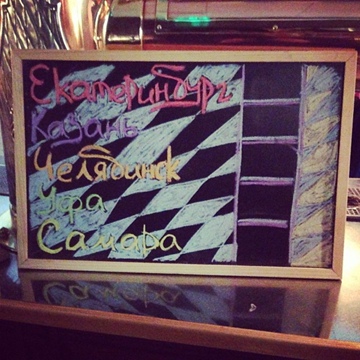 Екатеринбург
Казань
Челябинск
Уфа
Самара